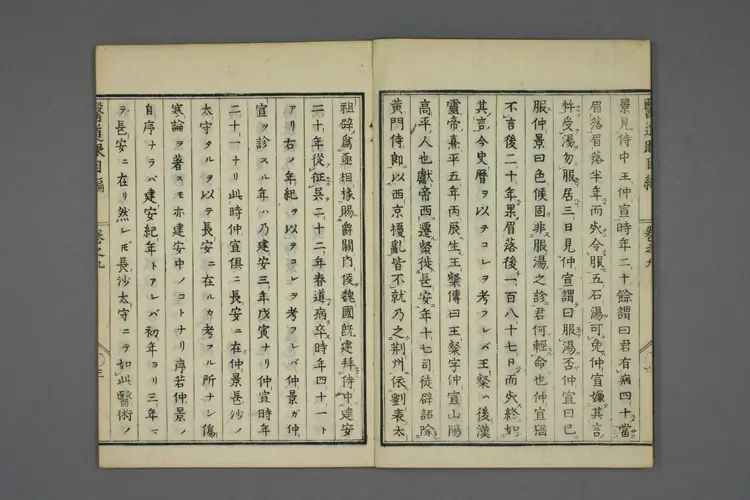 景見侍中王仲宣時年二十餘謂曰君有病四十當
眉落眉落半年而死令服五石湯可免仲宣嫌其言
忤受湯勿服居三日見仲宣謂曰服湯否仲宣曰已
服仲景曰色候固非服湯之診君何輕命也仲宣猶
不言後二十年果眉落後一百八十七日而死終如
其言今史曆ヲ以テコレヲ考フレバ王粲ハ後漢
靈帝熹平五年丙辰生王粲傳曰王粲字仲宣山陽
高平人也獻帝西遷粲徙長安年十七司徒辟詔除
黄門侍郎以西京擾亂皆不就乃之荆州依劉表太
祖辟爲丞相掾賜爵關內侯魏國既建拜侍中建安
二十年從征吳二十二年春道病卒時年四十一ト
アリ右ノ年紀ヲ以テコレヲ考フレバ仲景ガ仲
宣ヲ診スル年ハ乃建安三年戊寅ナリ仲宣時年
二十一ナリ此時仲宣俱ニ長安ニ在仲景長沙ノ
太守タルヲ以テ長安ニ在ルカ考フル所ナシ傷
寒論ヲ著スモ亦建安中ノコトナリ序若仲景ノ
自序ナラバ建安紀年トアレバ初年ヨリ三年マ
テ長安ニ在リ然レモ長沙太守ニテ如此醫術ノ
醫道眼目編 卷之九